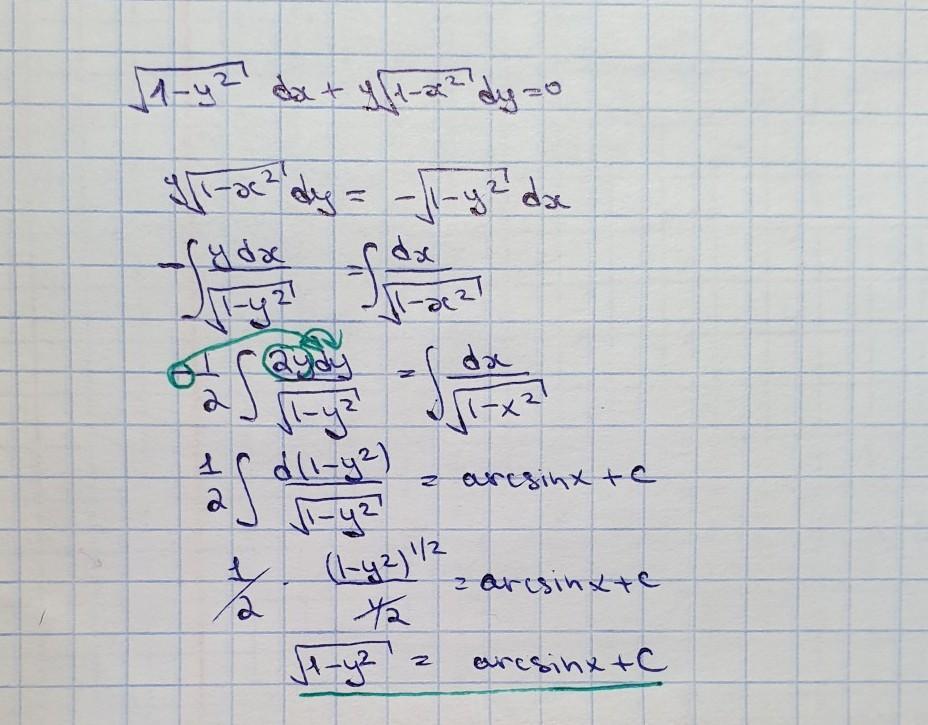 √(1-y²) dx + y√(1-x²) dy = 0
y√(1-x²) dy = -√(1-y²) dx
-∫ y dx / √(1-y²) = ∫ dx / √(1-x²)
-1/2 ∫ 2y dy / √(1-y²) = ∫ dx / √(1-x²)
1/2 ∫ d(1-y²) / √(1-y²) = arcsinx + C
1/2 · (1-y²)^1/2 / 1/2 = arcsinx + C
√(1-y²) = arcsinx + C